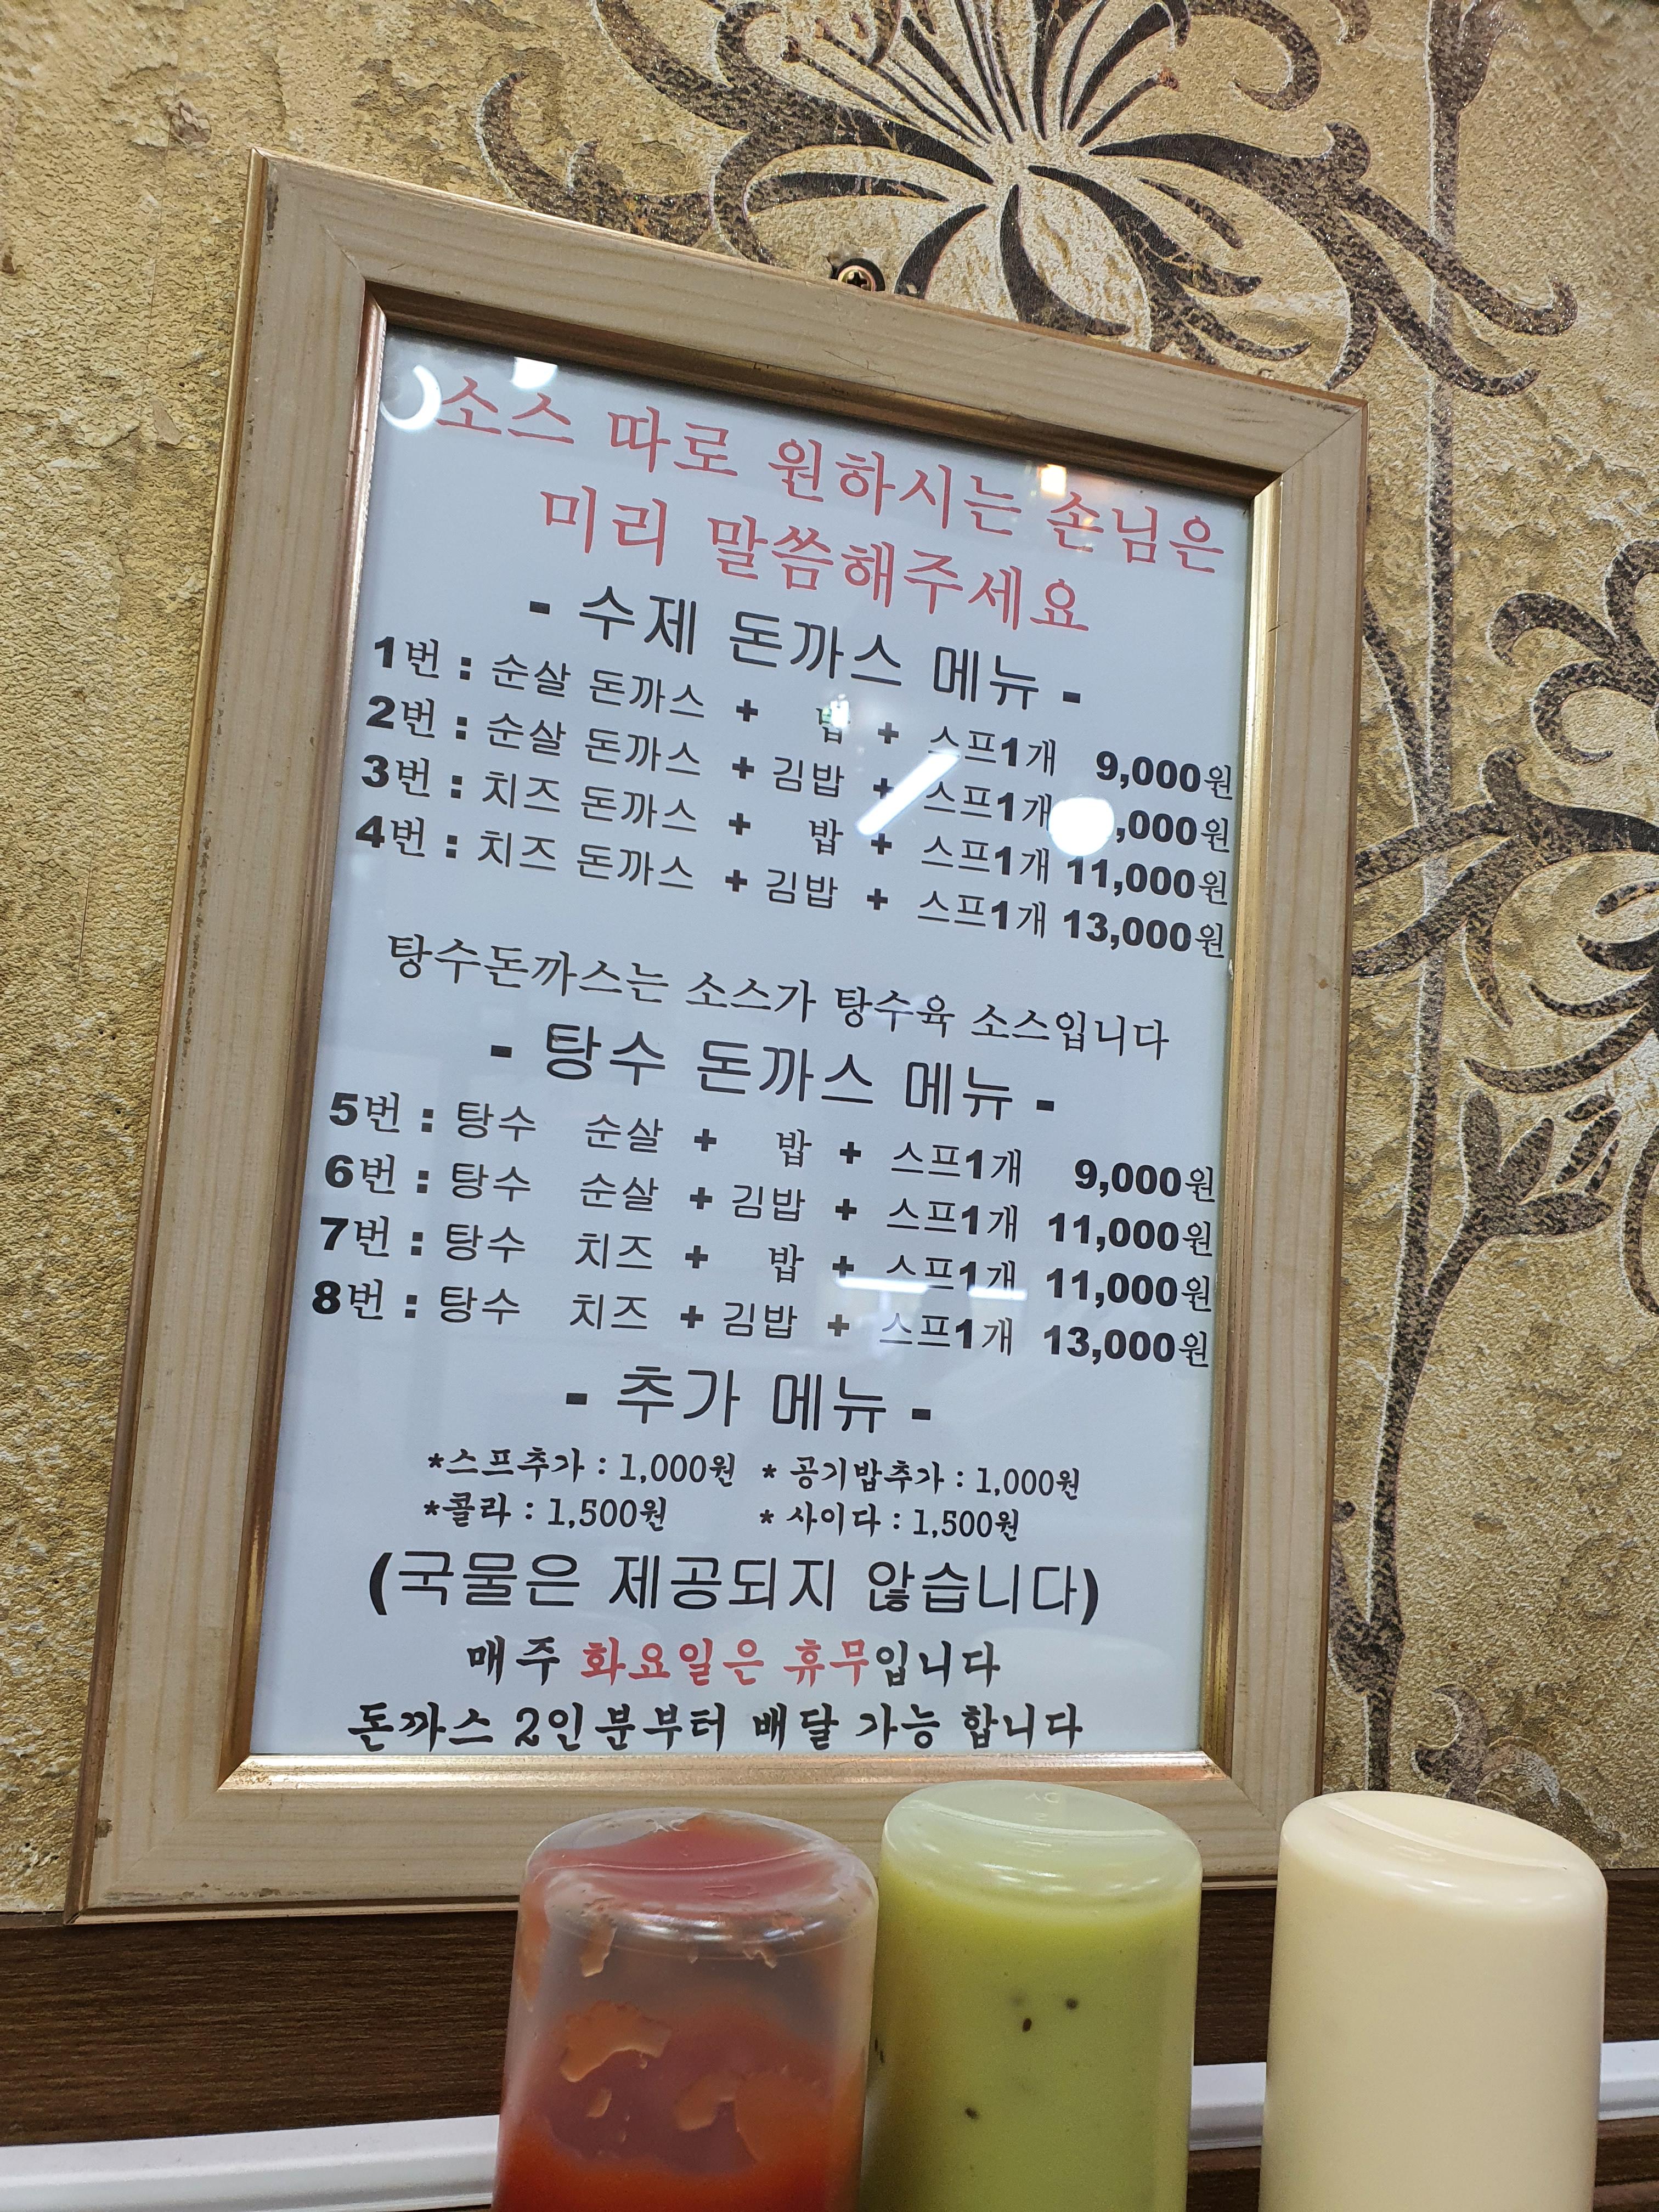 소스 따로 원하시는 손님은
미리 말씀해주세요
- 수제 돈까스 메뉴 -
1번 : 순살 돈까스 + 밥 + 스프1개 9,000원
2번 : 순살 돈까스 + 김밥 + 스프1개 ,000원
3번 : 치즈 돈까스 + 밥 + 스프1개 11,000원
4번 : 치즈 돈까스 + 김밥 + 스프1개 13,000원
탕수돈까스는 소스가 탕수육 소스입니다
- 탕수 돈까스 메뉴 -
5번 : 탕수 순살 + 밥 + 스프1개 9,000원
6번 : 탕수 순살 + 김밥 + 스프1개 11,000원
7번 : 탕수 치즈 + 밥 + 스프1개 11,000원
8번 : 탕수 치즈 + 김밥 + 스프1개 13,000원
- 추가 메뉴 -
*스프추가 : 1,000원 * 공기밥추가 : 1,000원
*콜라 : 1,500원 * 사이다 : 1,500원
(국물은 제공되지 않습니다)
매주 화요일은 휴무입니다
돈까스 2인분부터 배달 가능 합니다